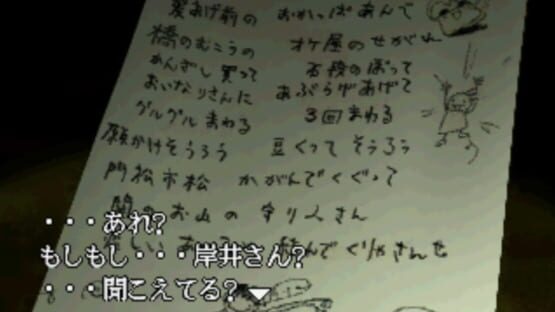 髪あげ前の おかっぱあんで
橋のむこうの オケ屋のせがれ
かんざし買って 石段のぼって
おいなりさんに あぶらげあげて
グルグルまわる 3回まわる
願かけそうろう 豆くってそうろう
門松市松 かがんでくぐって
のお山の守り人さん
・・・あれ?
もしもし・・・岸井さん?
・・・聞こえてる?